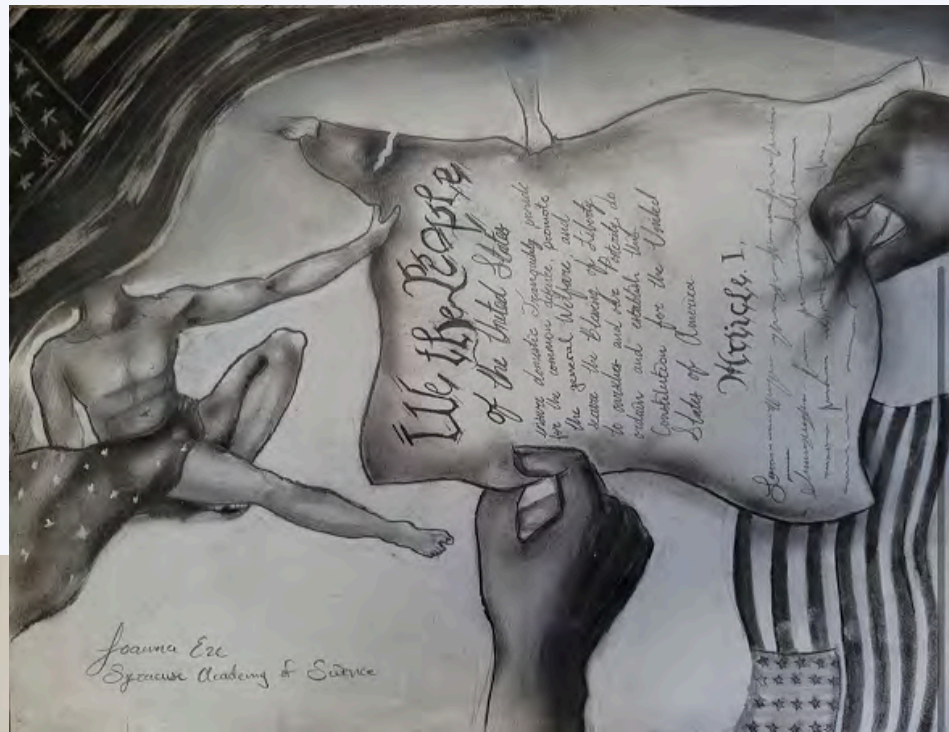 We the People
of the United States
insure domestic Tranquility, provide
for the common defence, promote
the general Welfare, and
secure the Blessing of Liberty
to ourselves and our Posterity, do
ordain and establish this
Constitution for the United
States of America
Article I.
Joanna Eze
Syracuse Academy of Science